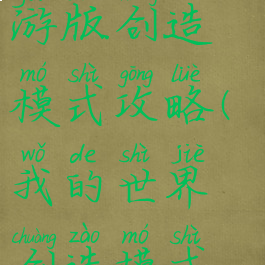 游版创造
mó shì gōng lüè
模式攻略(
wǒ de shì jiè
我的世界
chuàng zào mó shì
创造模式